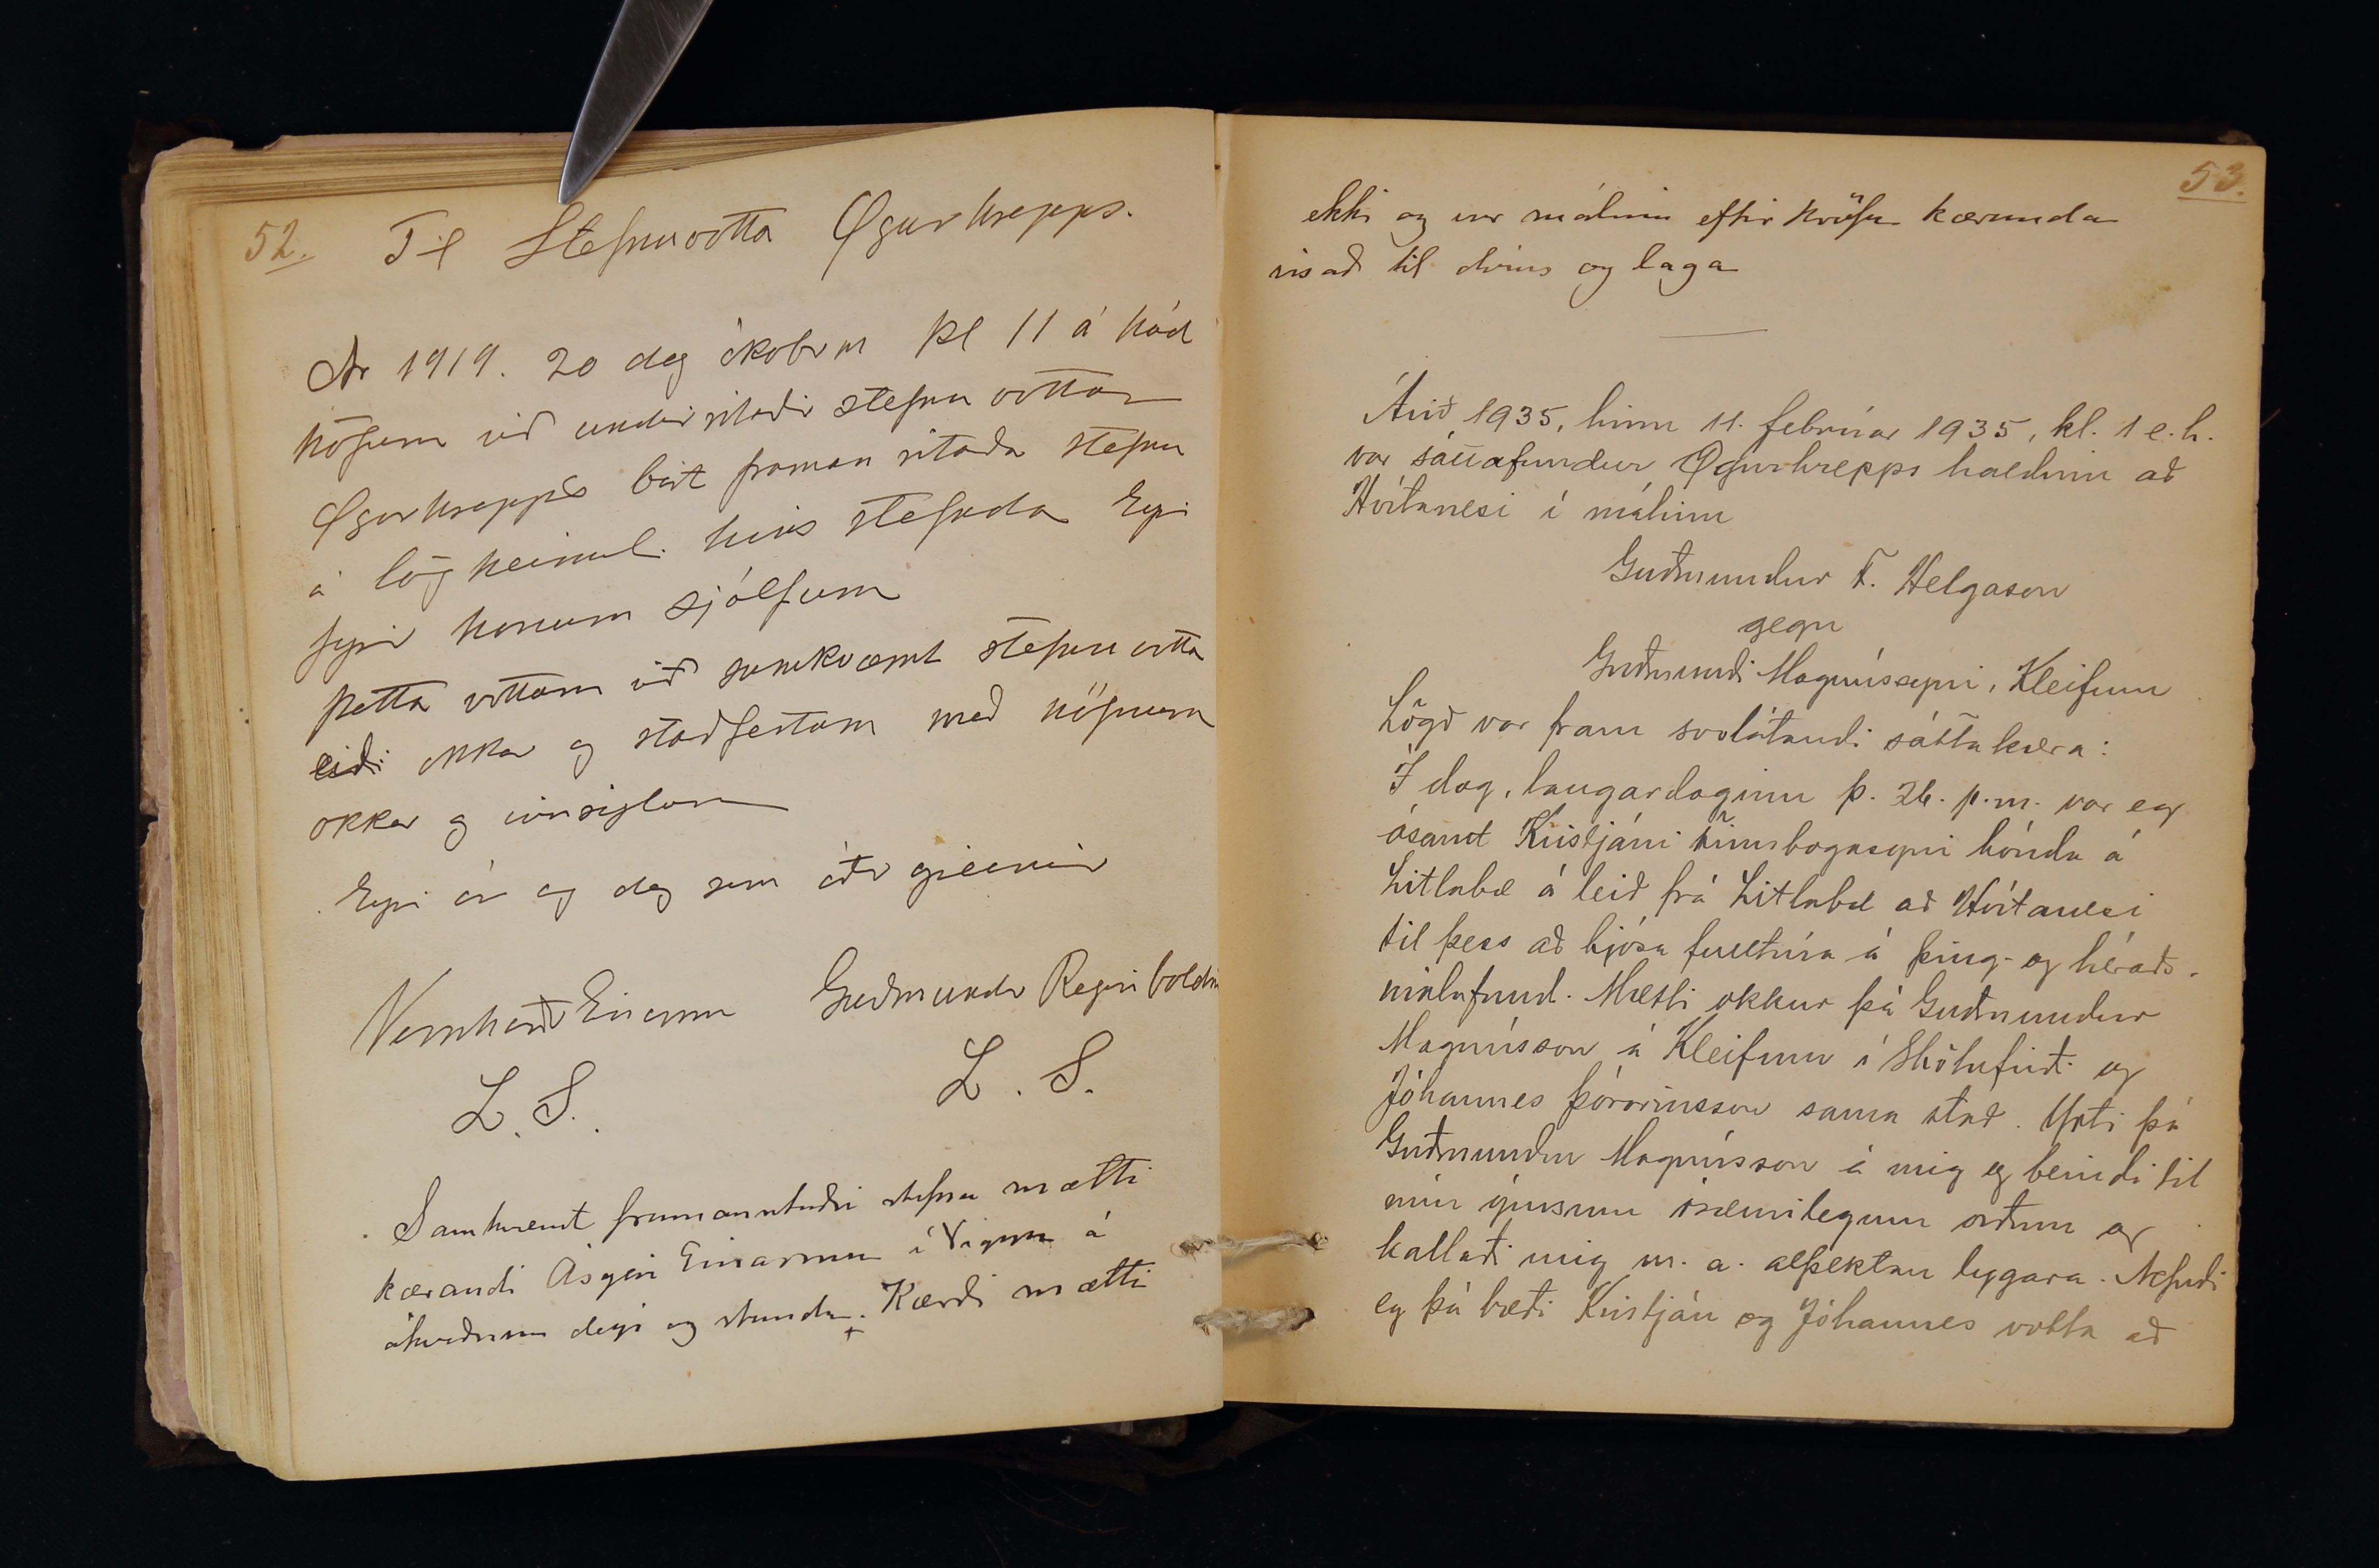 52.
Til Stefnuvotta Øgurhrepps.
Ár 1919. 20 dag óktobrm kl 11 á hád
höfum við undirritaðir stefnu vottar
Øgurhrepps birt framan ritaða stefnu
á lögheimil. hins stefnda Eyri
fyrir honum sjálfum
þetta vottum við samkvæmt stefnu votta
eiði okkar og staðfestum með nöfnum
okkar og innsiglum
Eyri ár og dag sem áðr greinir
Vernharðr Einarsson Guðmundr Reginbaldss
L. S. L. S.
Samkvæmt framanritaðri stefnu mætti
kærandi Ásgeir Einarsson í Vigur á
ákveðnum degi og stundu. Kærði mætti
53.
ekki og var málinu eftir kröfu kæranda
vísað til dóms og laga
Árið 1935, hinn 11. febrúar 1935, kl. 1 e.h.
var sáttafundur Øgurhrepps haldinn að
Hvítanesi í málinu
Guðmundur F. Helgason
gegn
Guðmundi Magnússyni, Kleifum
Lögð var fram svolátandi sáttakæra:
Í dag, laugardaginn þ. 26. þ.m. var eg
ásamt Kristjáni Finnbogasyni bónda á
Litlabæ á leið frá Litlabæ að Hvítanesi
til þess að kjósa fulltrúa á þing- og héraðs-
málafund. Mætti okkur þá Guðmundur
Magnússon á Kleifum í Skötufirði og
Jóhannes Þórarinsson sama stað. Yrti þá
Guðmundur Magnússon á mig og beindi til
mín ýmsum ósæmilegum orðum og
kallaði mig m. a. alþektan lygara. Nefndi
eg þá bæði Kristján og Jóhannes votta að